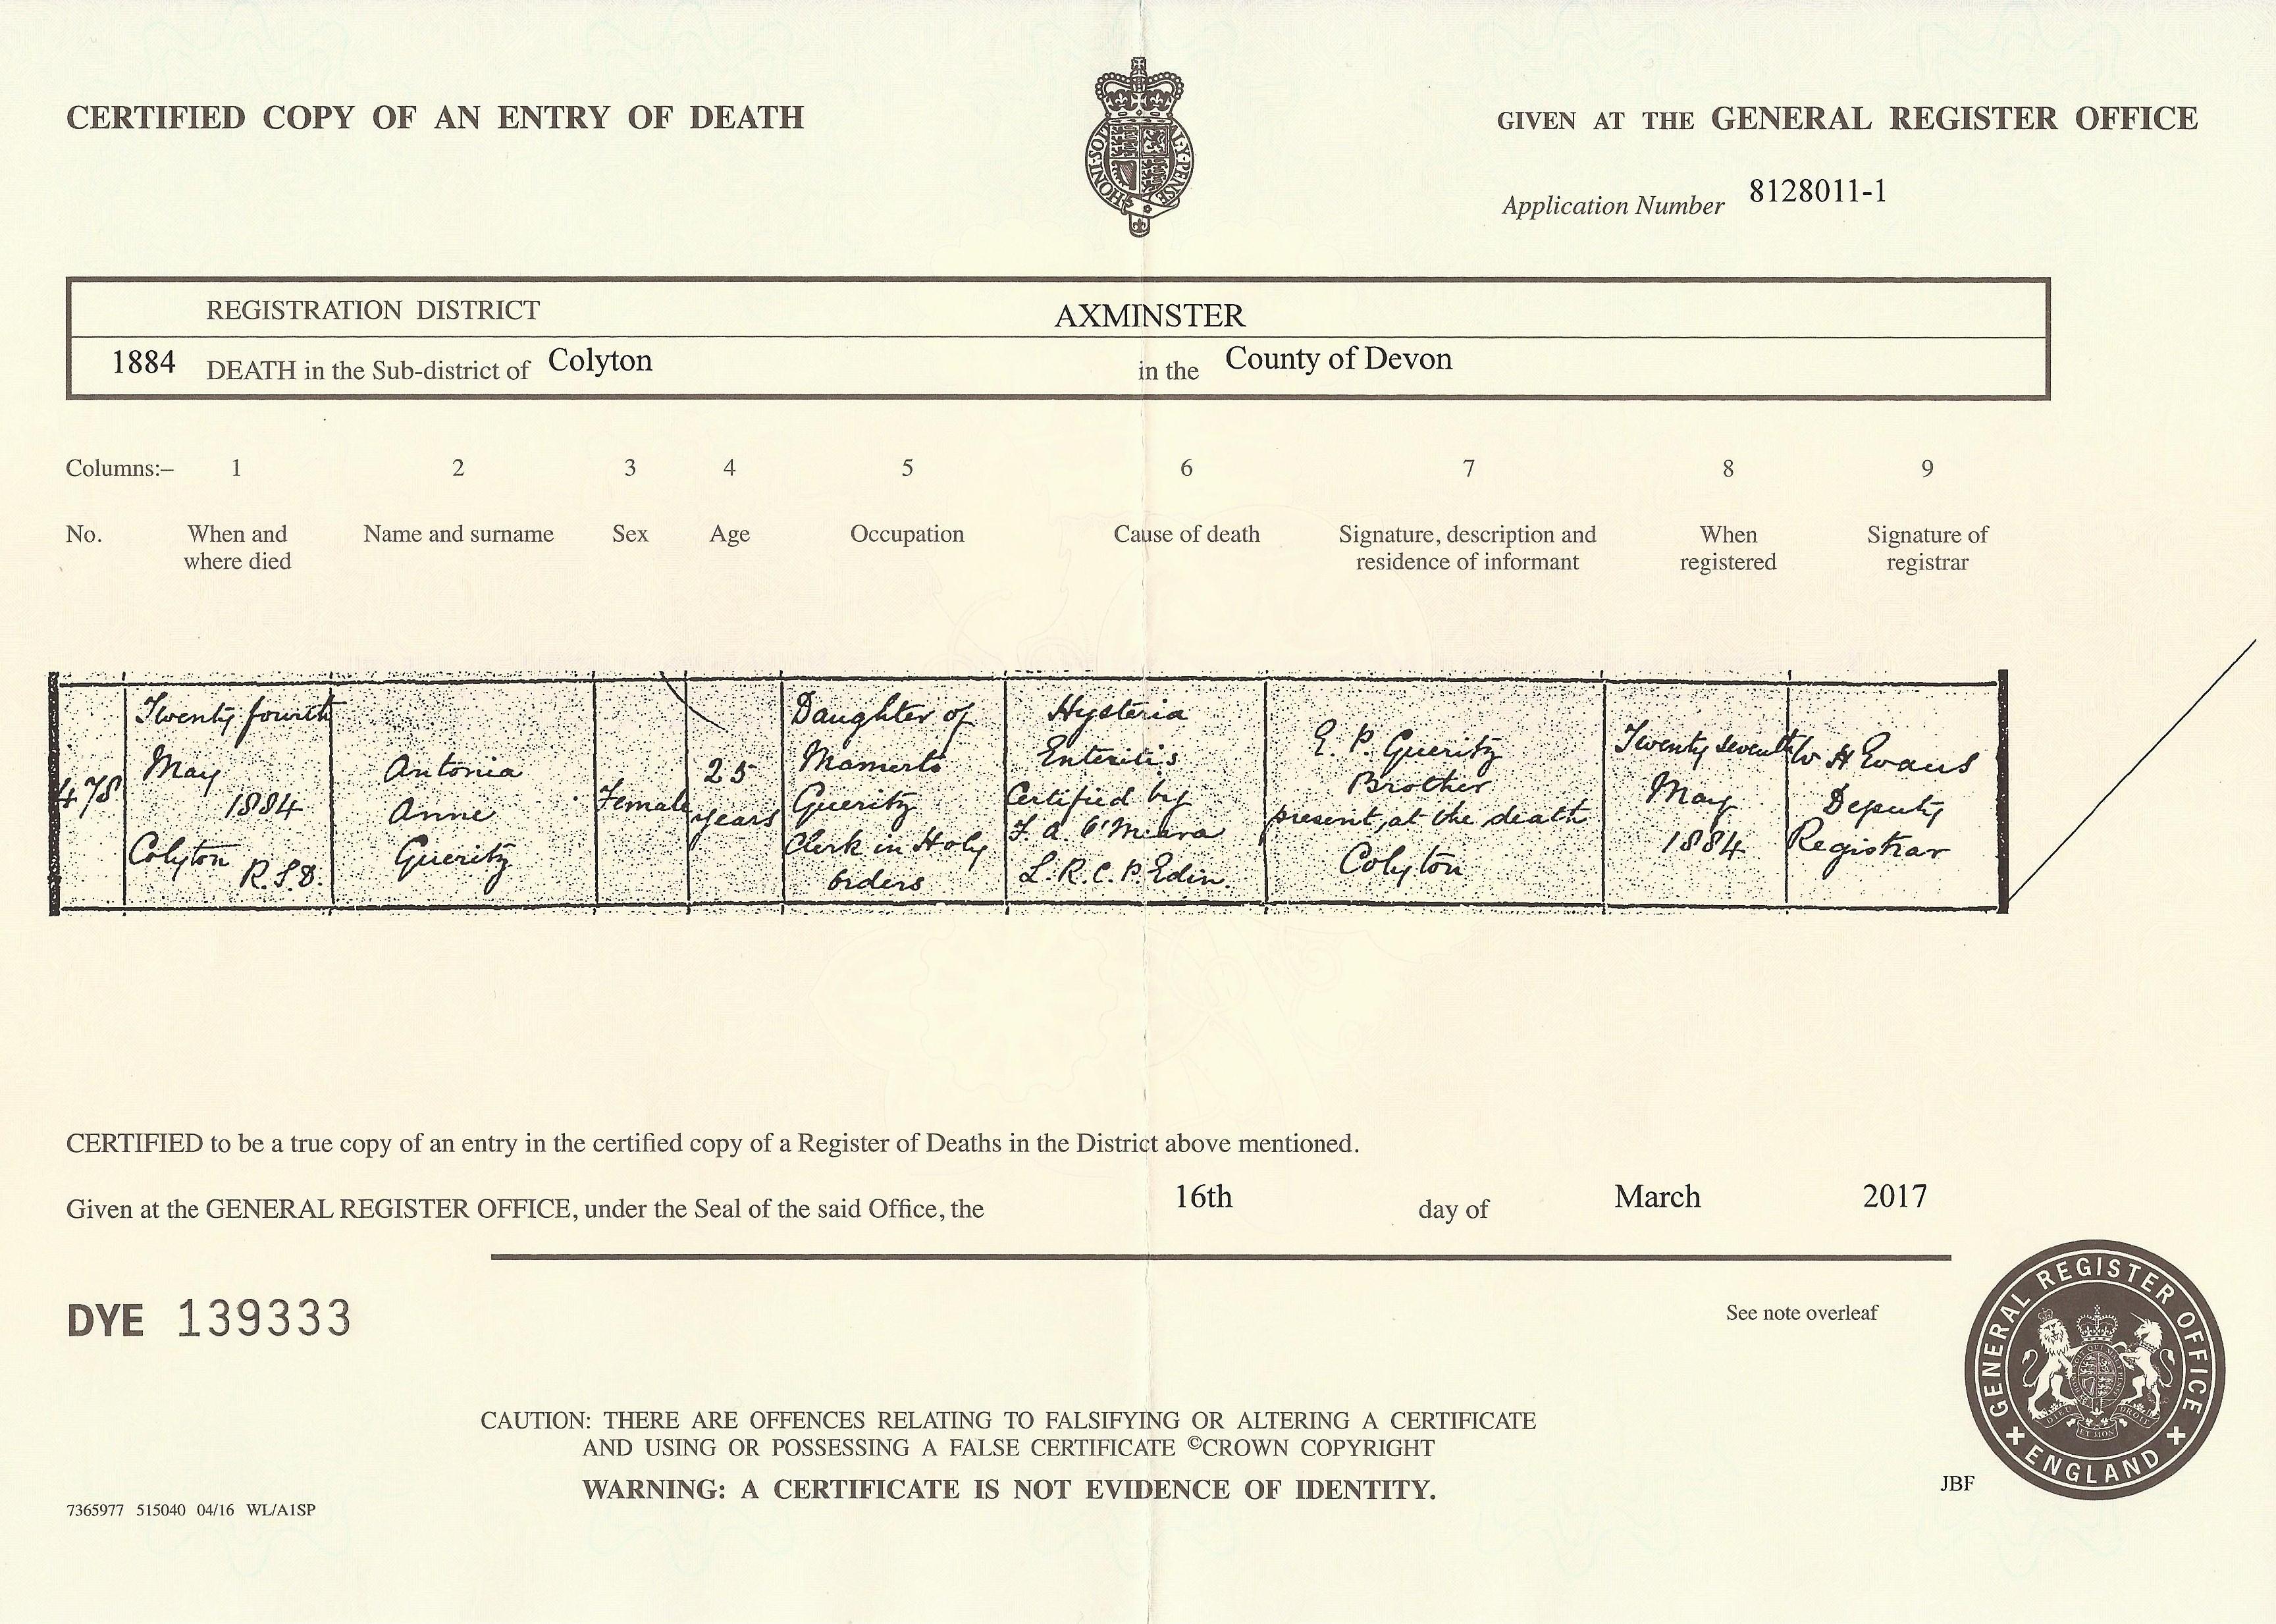 CERTIFIED COPY OF AN ENTRY OF DEATH
GIVEN AT THE GENERAL REGISTER OFFICE
HONI·SOIT AL·Y·PENSE
Application Number 8128011-1
REGISTRATION DISTRICT AXMINSTER
1884 DEATH in the Sub-district of Colyton in the County of Devon
Columns:– 1 2 3 4 5 6 7 8 9
No.
When and
where died
Name and surname
Sex
Age
Occupation
Cause of death
Signature, description and
residence of informant
When
registered
Signature of
registrar
478
Twenty fourth
May
1884
Colyton R.S.D.
Antonia
Anne
Gueritz
Female
25
years
Daughter of
Mamerto
Gueritz
Clerk in Holy
Orders
Hysteria
Enteritis
Certified by
F. A. O'Meara
L.R.C.P. Edin.
E. P. Gueritz
Brother
present at the death
Colyton
Twenty seventh
May
1884
W H Evans
Deputy
Registrar
CERTIFIED to be a true copy of an entry in the certified copy of a Register of Deaths in the District above mentioned.
Given at the GENERAL REGISTER OFFICE, under the Seal of the said Office, the 16th day of March 2017
DYE 139333
See note overleaf
GENERAL REGISTER OFFICE
ENGLAND
CAUTION: THERE ARE OFFENCES RELATING TO FALSIFYING OR ALTERING A CERTIFICATE
AND USING OR POSSESSING A FALSE CERTIFICATE ©CROWN COPYRIGHT
WARNING: A CERTIFICATE IS NOT EVIDENCE OF IDENTITY.
JBF
7365977 515040 04/16 WL/A1SP